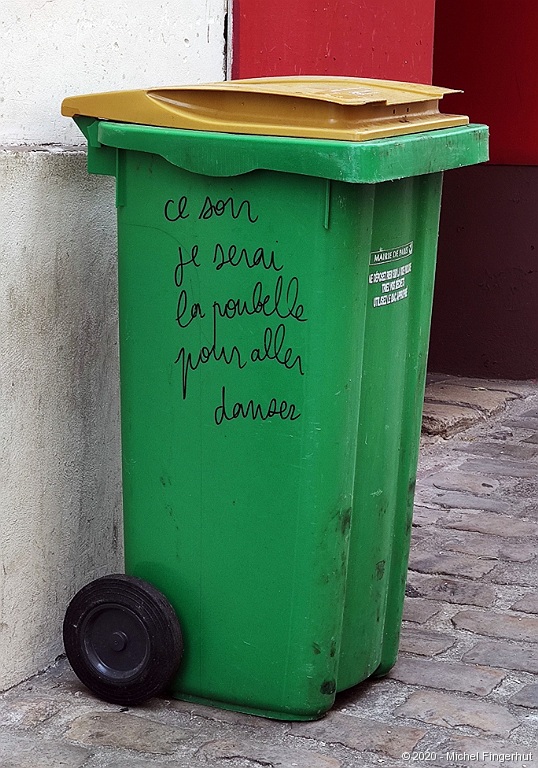 ce soir
je serai
la poubelle
pour aller
danser
MAIRIE DE PARIS
NE DÉPOSEZ RIEN SUR LA VOIE PUBLIQUE
TRIEZ VOS DÉCHETS
UTILISEZ LE BAC APPROPRIÉ
©2020 - Michel Fingerhut